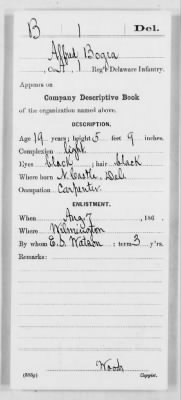 B 1 Del.
Alfred Bogia
, Co. , Reg't Delaware Infantry.
Appears on
Company Descriptive Book
of the organization named above.
DESCRIPTION.
Age 19 years; height 5 feet 9 inches.
Complexion light
Eyes black; hair black
Where born N. Castle, Del
Occupation Carpenter
ENLISTMENT.
When Aug 7, 186 .
Where Wilmington
By whom E. S. Watson; term 3 y'rs.
Remarks:
Wood
(383g) Copyist.